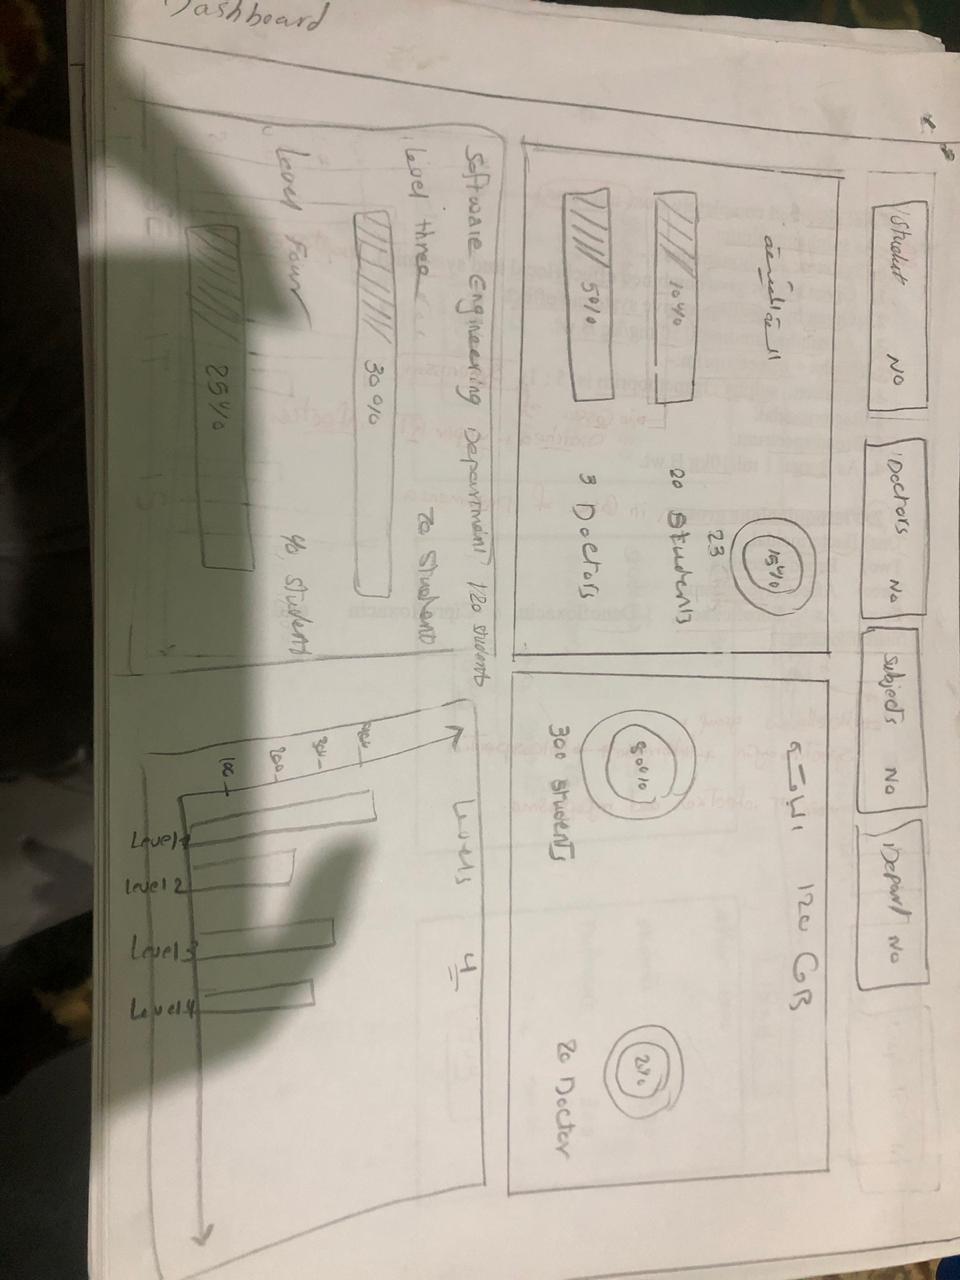 Dashboard
Student No
Doctors No
Subjects No
Depart No
15%
23
10%
20 Students
5%
3 Doctors
120 GB
50%
300 students
20%
20 Doctor
Software Engineering Department 120 students
Level three
20 Student
30%
Level Four
Student
25%
Levels 4
300
200
100
Level 1
Level 2
Level 3
Level 4